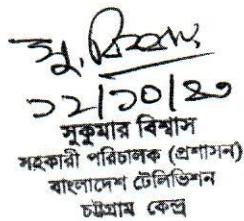 সু. বিশ্বাস
১২/১০/২০
সুকুমার বিশ্বাস
সহকারী পরিচালক (প্রশাসন)
বাংলাদেশ টেলিভিশন
চট্টগ্রাম কেন্দ্র